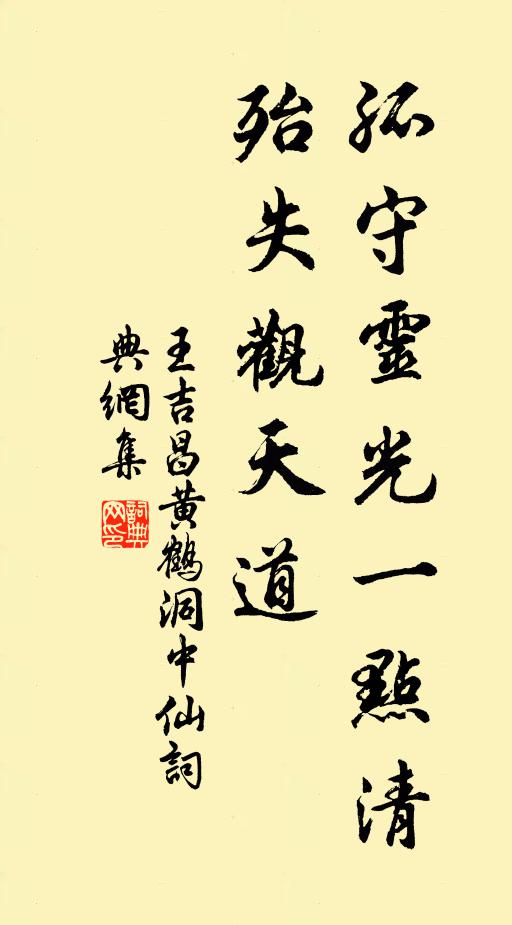 孤守靈光一點清
殆失觀天道
王吉昌黃鶴洞中仙詞
典網集
詞典网印